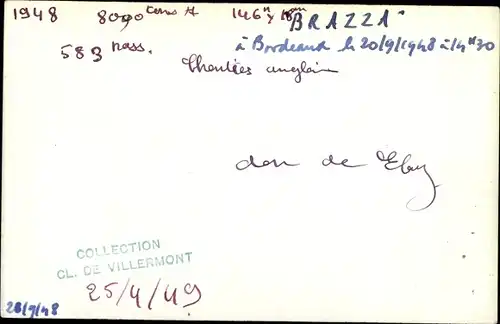 1948 8090 tons 146m x 18m "BRAZZA"
583 pass. à Bordeaux le 20/9/1948 à 14h30
Chantiers anglais
don de
COLLECTION
CL. DE VILLERMONT
25/4/49
28/9/48